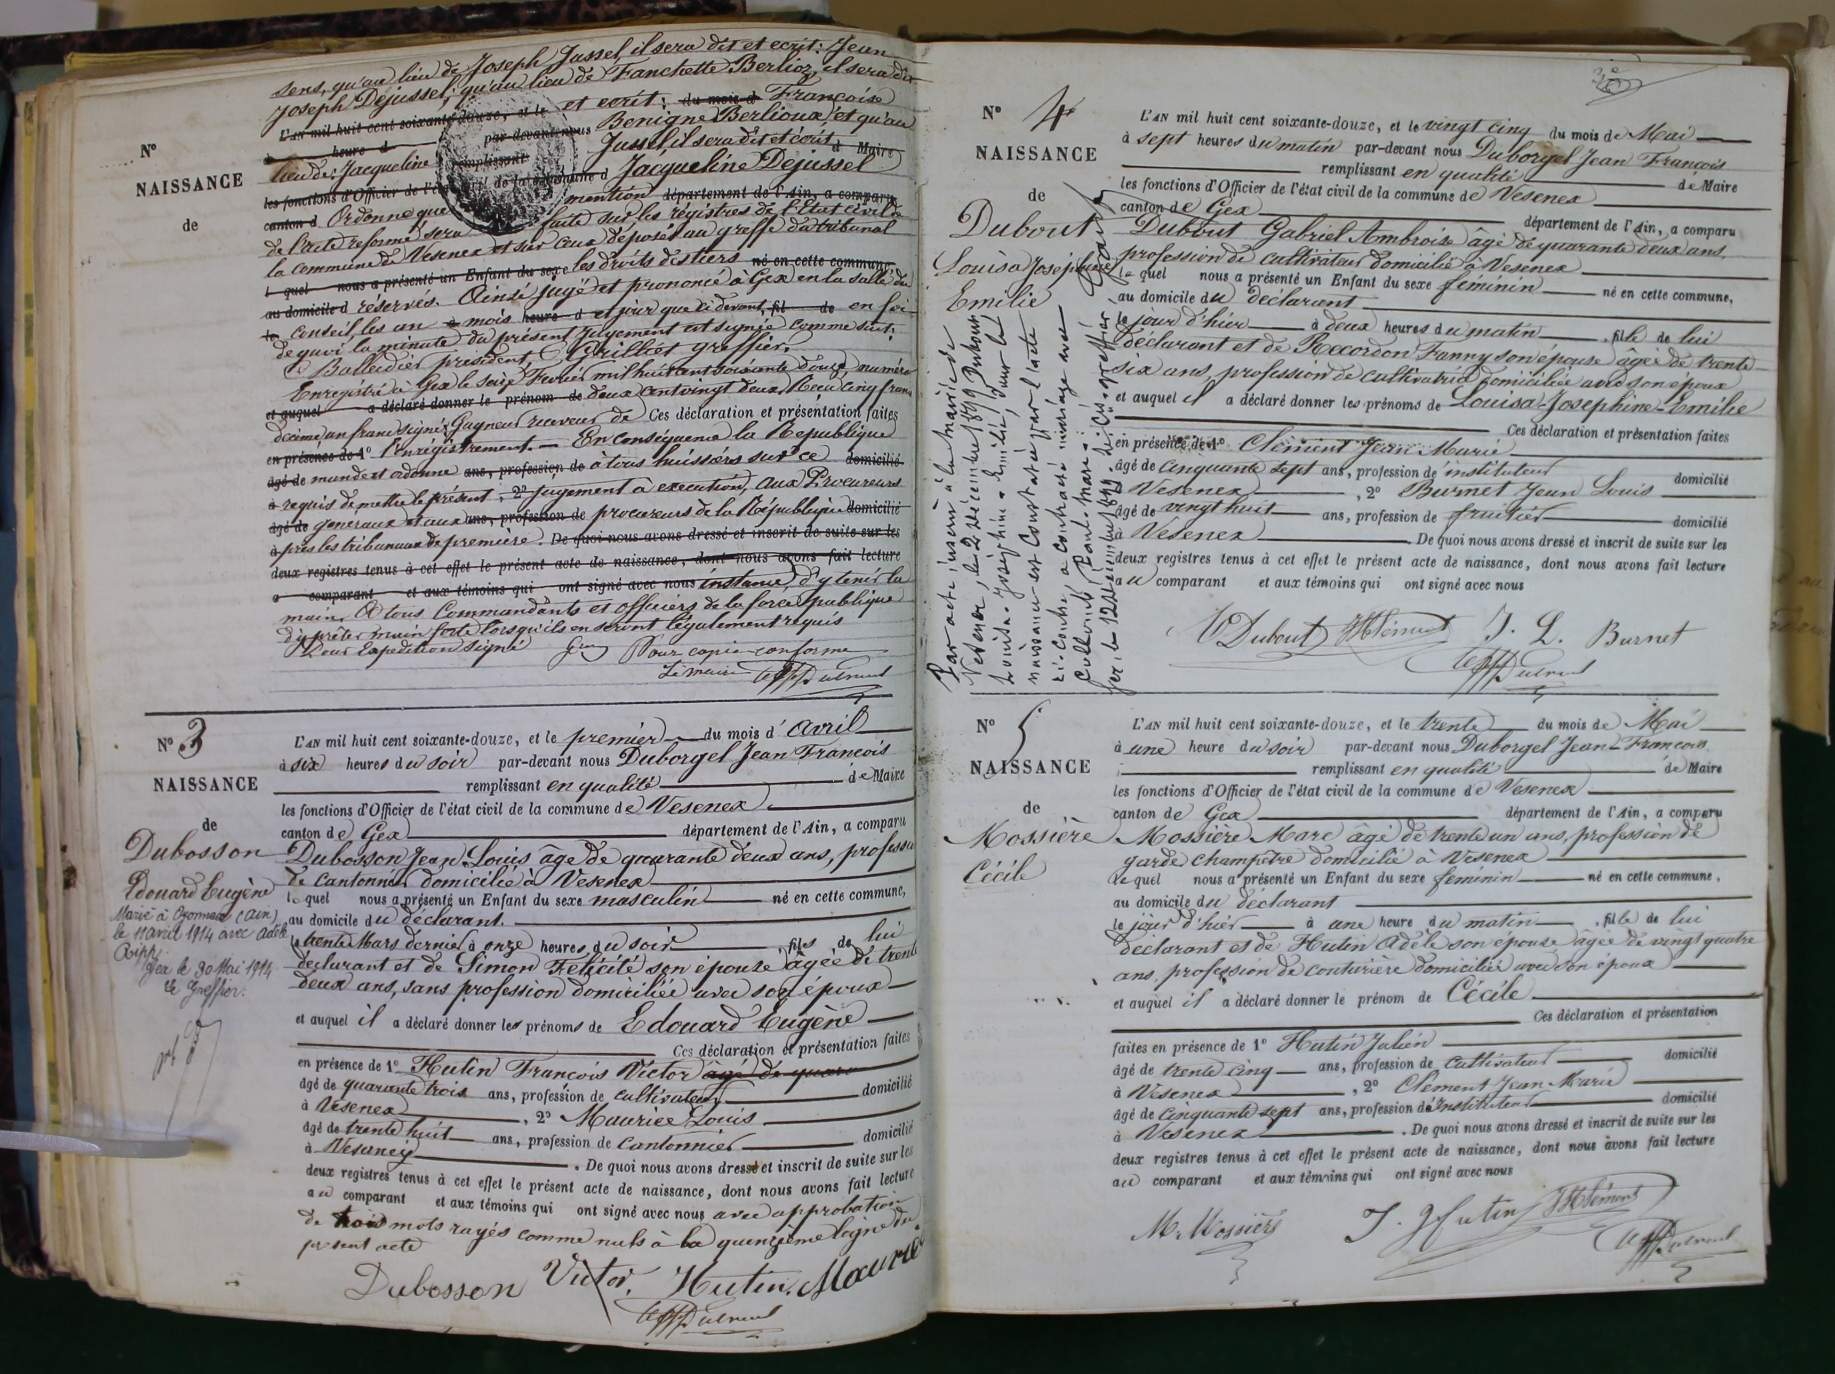 sens, qu'au lieu de Joseph Jussel, il sera dit et ecrit: Jean
Joseph Dejussel; qu'au lieu de Fanchette Berlioz, il sera dit
L'AN mil huit cent soixante-douze, et le et ecrit: du mois d Françoise
heure d par-devant nous Benigne Berlioux, et qu'au
lieu de: Jacqueline remplissant Jussel, il sera dit et écrit d Maire
Jacqueline Dejussel
les fonctions d'Officier de l'état civil de la commune d
canton d Ordonne que mention département de l'Ain, a comparu
de l'acte reformé sera faite sur les registres de l'Etat civil de
la commune de Vesenex et sur ceux déposés au greffe du tribunal
l quel nous a présenté un Enfant du sexe les droits des tiers né en cette commune,
au domicile d réservés. Ainsi jugé et prononcé à Gex en la salle du
conseil, les an à mois heure d et jour que ci devant, fil de en foi
de quoi la minute du présent jugement est signée comme suit:
Balleidier président, Grilliet greffier.
Enregistré à Gex le seize Fevrier mil huit cent soixante douze, numéro
et auquel a déclaré donner le prénom de deux cent vingt deux, Recu cinq francs
decime un franc signé: Gagneur receveur de Ces déclaration et présentation faites
en présence de 1° l'enregistrement. En conséquence la Republique
âgé de mande et ordonne ans, profession de à tous huissiers sur ce domicilié
à requis de mettre le présent, 2° jugement à execution, aux Procureurs
âgé de generaux et aux ans, profession de procureurs de la République domicilié
à près les tribunaux de première. De quoi nous avons dressé et inscrit de suite sur les
deux registres tenus à cet effet le présent acte de naissance, dont nous avons fait lecture
a comparant et aux témoins qui ont signé avec nous instance, d'y tenir la
main, A tous Commandants et officiers de la force publique
d'y prêter main forte lorsqu'ils en seront légalement requis
Pour Expedition signé Pour copie conforme
Le maire
N°
NAISSANCE
de
N° 3
NAISSANCE
de
Dubosson
Edouard Eugène
Marié à Oyonnax (Ain)
le 11 avril 1914 avec Adèle
Gex le 30 Mai 1914
Le Greffier.
L'AN mil huit cent soixante-douze, et le premier du mois d' avril
à six heures du soir par-devant nous Duborgel Jean François
remplissant en qualité de Maire
les fonctions d'Officier de l'état civil de la commune de Vesenex
canton de Gex département de l'Ain, a comparu
Dubosson Jean Louis âge de quarante deux ans, profession
de Cantonnier domicilié à Vesenex
le quel nous a présenté un Enfant du sexe masculin né en cette commune,
au domicile du déclarant.
le trente Mars dernier à onze heures du soir, fils de lui
declarant et de Simon Félicité son épouse âgée de trente
deux ans, sans profession domiciliée avec son époux
et auquel il a déclaré donner les prénoms de Edouard Eugène
Ces déclaration et présentation faites
en présence de 1° Hutin François Victor âgé de quara
âgé de quarante trois ans, profession de cultivateur domicilié
à Vesenex, 2° Maurice Louis
âgé de trente huit ans, profession de Cantonnier domicilié
à Vesancy. De quoi nous avons dressé et inscrit de suite sur les
deux registres tenus à cet effet le présent acte de naissance, dont nous avons fait lecture
au comparant et aux témoins qui ont signé avec nous avec approbation
de trois mots rayés comme nuls à la quinzième ligne du
présent acte
Dubosson Victor. Hutin. Maurice
N° 4
NAISSANCE
de
Dubout
Louisa Josephine
Emilie
Par acte inscrit à la mairie de
Vesenex, le 2 décembre 1899 Dubout
Louisa-Joséphine-Emilie, dont la
naissance est constatée par l'acte
ci-contre, a contracté mariage avec
L'AN mil huit cent soixante-douze, et le vingt cinq du mois de Mai
à sept heures du matin par-devant nous Duborgel Jean François
remplissant en qualité de Maire
les fonctions d'Officier de l'état civil de la commune de Vesenex
canton de Gex département de l'Ain, a comparu
Dubout Gabriel Ambroise âgé de quarante deux ans,
profession de cultivateur domicilié à Vesenex
le quel nous a présenté un Enfant du sexe féminin né en cette commune,
au domicile du déclarant
le jour d'hier à deux heures du matin, fille de lui
déclarant et de Recordon Fanny son épouse âgée de trente
six ans, profession de cultivatrice domiciliée avec son époux
et auquel il a déclaré donner les prénoms de Louisa-Josephine-Emilie
Ces déclaration et présentation faites
en présence de 1° Clément Jean Marie
âgé de cinquante sept ans, profession d'instituteur domicilié
à Vesenex, 2° Burnet Jean Louis
âgé de vingt huit ans, profession de fruitier domicilié
à Vesenex. De quoi nous avons dressé et inscrit de suite sur les
deux registres tenus à cet effet le présent acte de naissance, dont nous avons fait lecture
au comparant et aux témoins qui ont signé avec nous
Dubout JMClément J. L. Burnet
N° 5
NAISSANCE
de
Mossière
Cécile
L'AN mil huit cent soixante-douze, et le trente du mois de Mai
à une heure du soir par-devant nous Duborgel Jean-François
remplissant en qualité de Maire
les fonctions d'Officier de l'état civil de la commune de Vesenex
canton de Gex département de l'Ain, a comparu
Mossière Marc âgé de trente un ans, profession de
garde champêtre domicilié à Vesenex
le quel nous a présenté un Enfant du sexe féminin né en cette commune,
au domicile du déclarant
le jour d'hier à une heure du matin, fille de lui
déclarant et de Hutin Adèle son épouse âgée de vingt quatre
ans, profession de couturière domiciliée avec son époux
et auquel il a déclaré donner le prénom de Cécile
Ces déclaration et présentation
faites en présence de 1° Hutin Julien
âgé de trente cinq ans, profession de cultivateur domicilié
à Vesenex, 2° Clement Jean Marie
âgé de cinquante sept ans, profession d'Instituteur domicilié
à Vesenex. De quoi nous avons dressé et inscrit de suite sur les
deux registres tenus à cet effet le présent acte de naissance, dont nous avons fait lecture
au comparant et aux témoins qui ont signé avec nous
M. Mossière J. Hutin JMClément